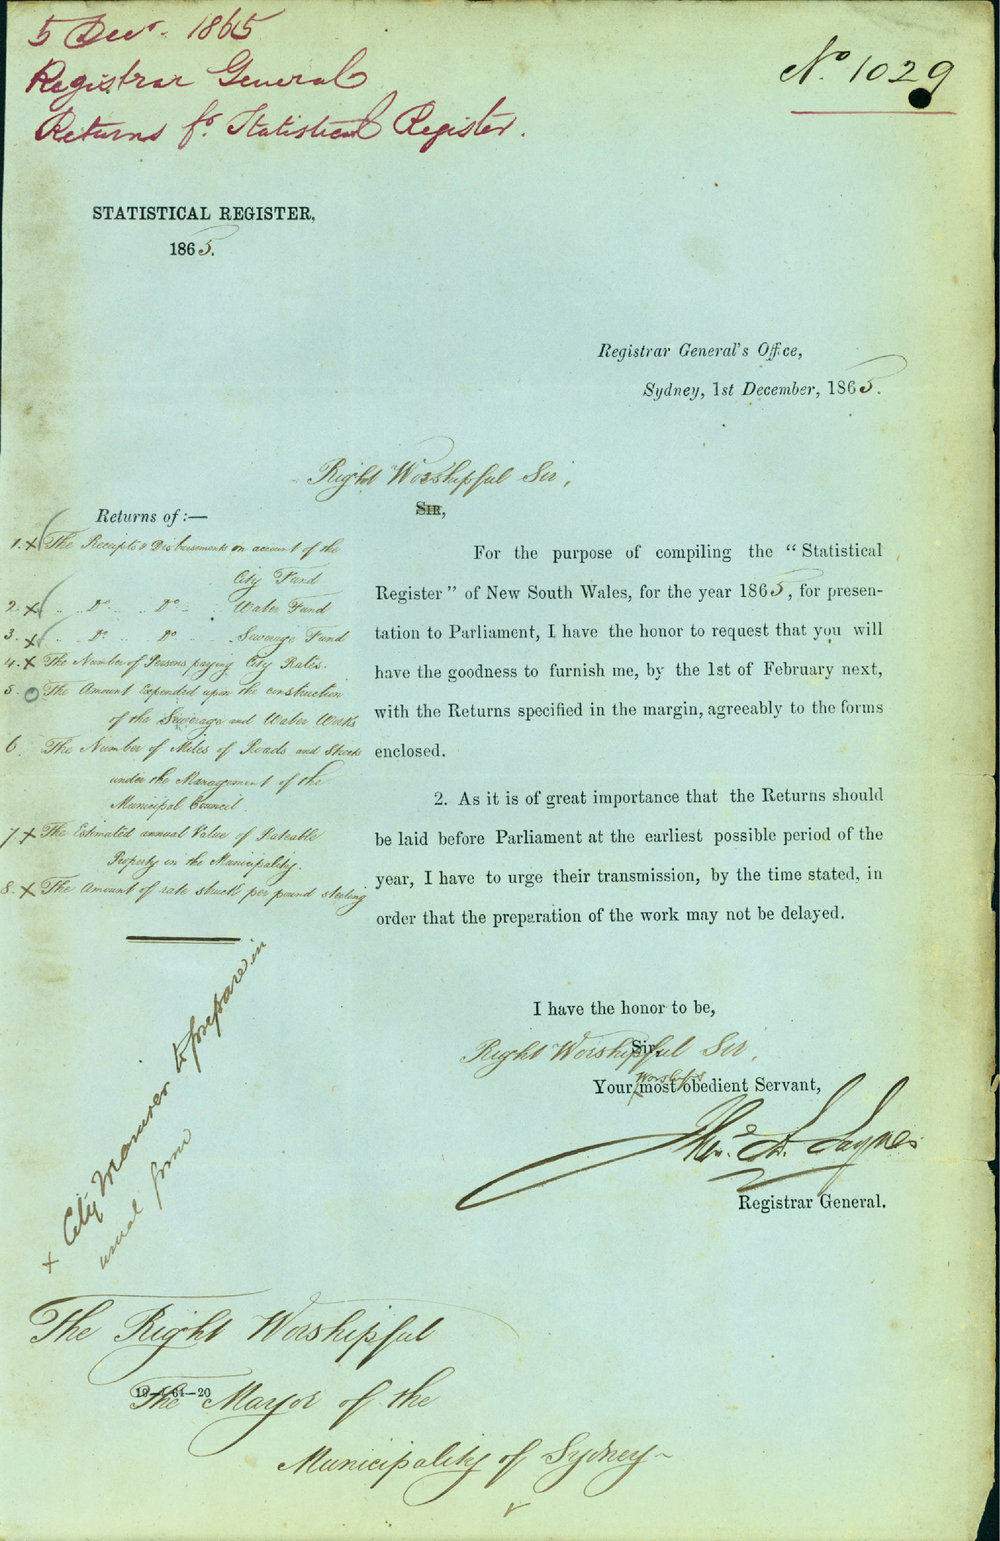 5 Decr. 1865
Registrar General
Returns fr. Statistical Register.
No. 1029
STATISTICAL REGISTER,
1865.
Registrar General's Office,
Sydney, 1st December, 1865.
Right Worshipful Sir,
SIR,
Returns of:—
1. x The Receipts & Disbursements on account of the
City Fund
2. x " Do " Do " Water Fund
3. x " Do " Do " Sewerage Fund
4. x The Number of Persons paying City Rates.
5. o The Amount Expended upon the construction
of the Sewerage and Water Works
6. The Number of Miles of Roads and Streets
under the Management of the
Municipal Council
7 x The Estimated annual Value of Rateable
Property in the Municipality.
8. x The Amount of rate struck per pound sterling
For the purpose of compiling the "Statistical
Register" of New South Wales, for the year 1865, for presen-
tation to Parliament, I have the honor to request that you will
have the goodness to furnish me, by the 1st of February next,
with the Returns specified in the margin, agreeably to the forms
enclosed.
2. As it is of great importance that the Returns should
be laid before Parliament at the earliest possible period of the
year, I have to urge their transmission, by the time stated, in
order that the preparation of the work may not be delayed.
x City Treasurer to prepare in
usual form
I have the honor to be,
Right Worshipful Sir,
Sir,
Your Worship's most obedient Servant,
Registrar General.
The Right Worshipful
The Mayor of the
Municipality of Sydney